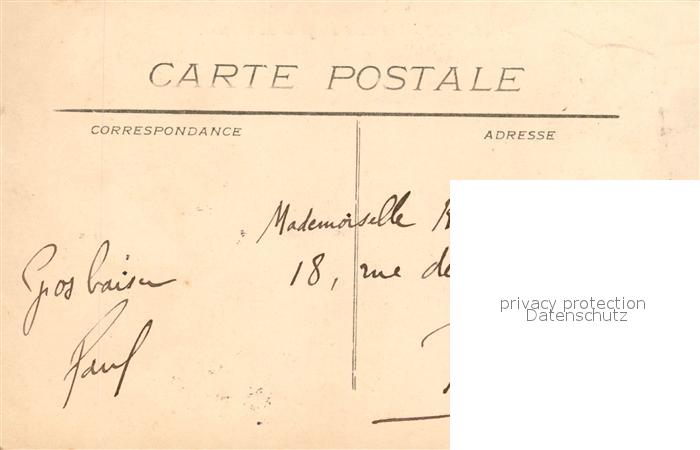 CARTE POSTALE
CORRESPONDANCE
ADRESSE
Mademoiselle
18, rue de
Gros baiser
Paul
privacy protection
Datenschutz